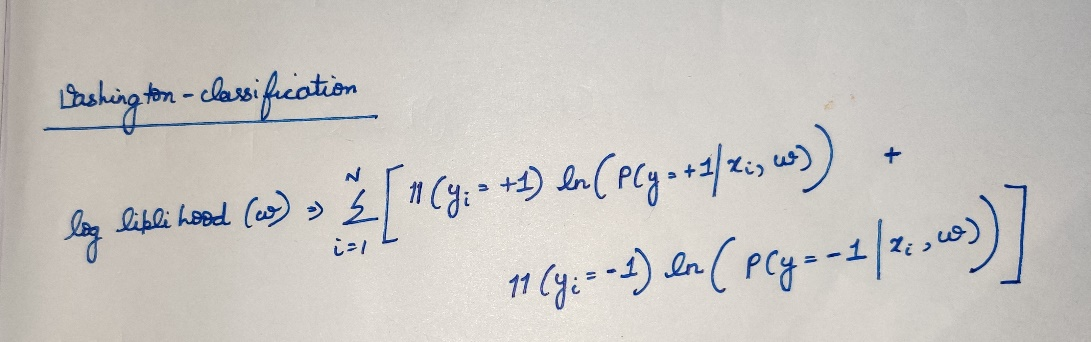 Washington - classification
log liklihood (w) ⇒ N Σ i=1 [ 11 (yi = +1) ln ( P(y = +1 | xi, w) ) +
11 (yi = -1) ln ( P(y = -1 | xi, w) ) ]